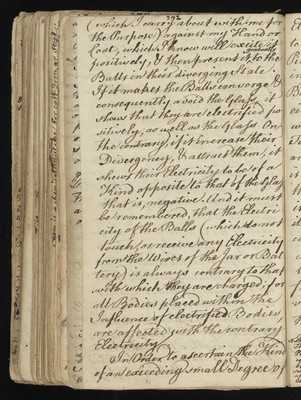 292
(which I carry about with me for
the Purpose) against my Hand or
Coat, which I know will excite it
positively, & then present it to the
Balls in their diverging State
If it makes the Balls converge &
consequently avoid the Glass, it
shows that they are electrified po
sitively, as well as the Glass. On
the contrary, if it increase their
Divergency, & attract them, it
shews their Electricity to be of a
Kind opposite to that of the Glass
that is, negative. And it must
be remembered, that the Electri
city of the Balls (which do not
touch, or receive any Electricity
from the Wires of the Jar or Bat
tery) is always contrary to that
with which they are charged; for
all Bodies placed within the
Influence of electrified Bodies
are affected with the contrary
Electricity
In Order to ascertain the Kind
of an exceeding small Degree of